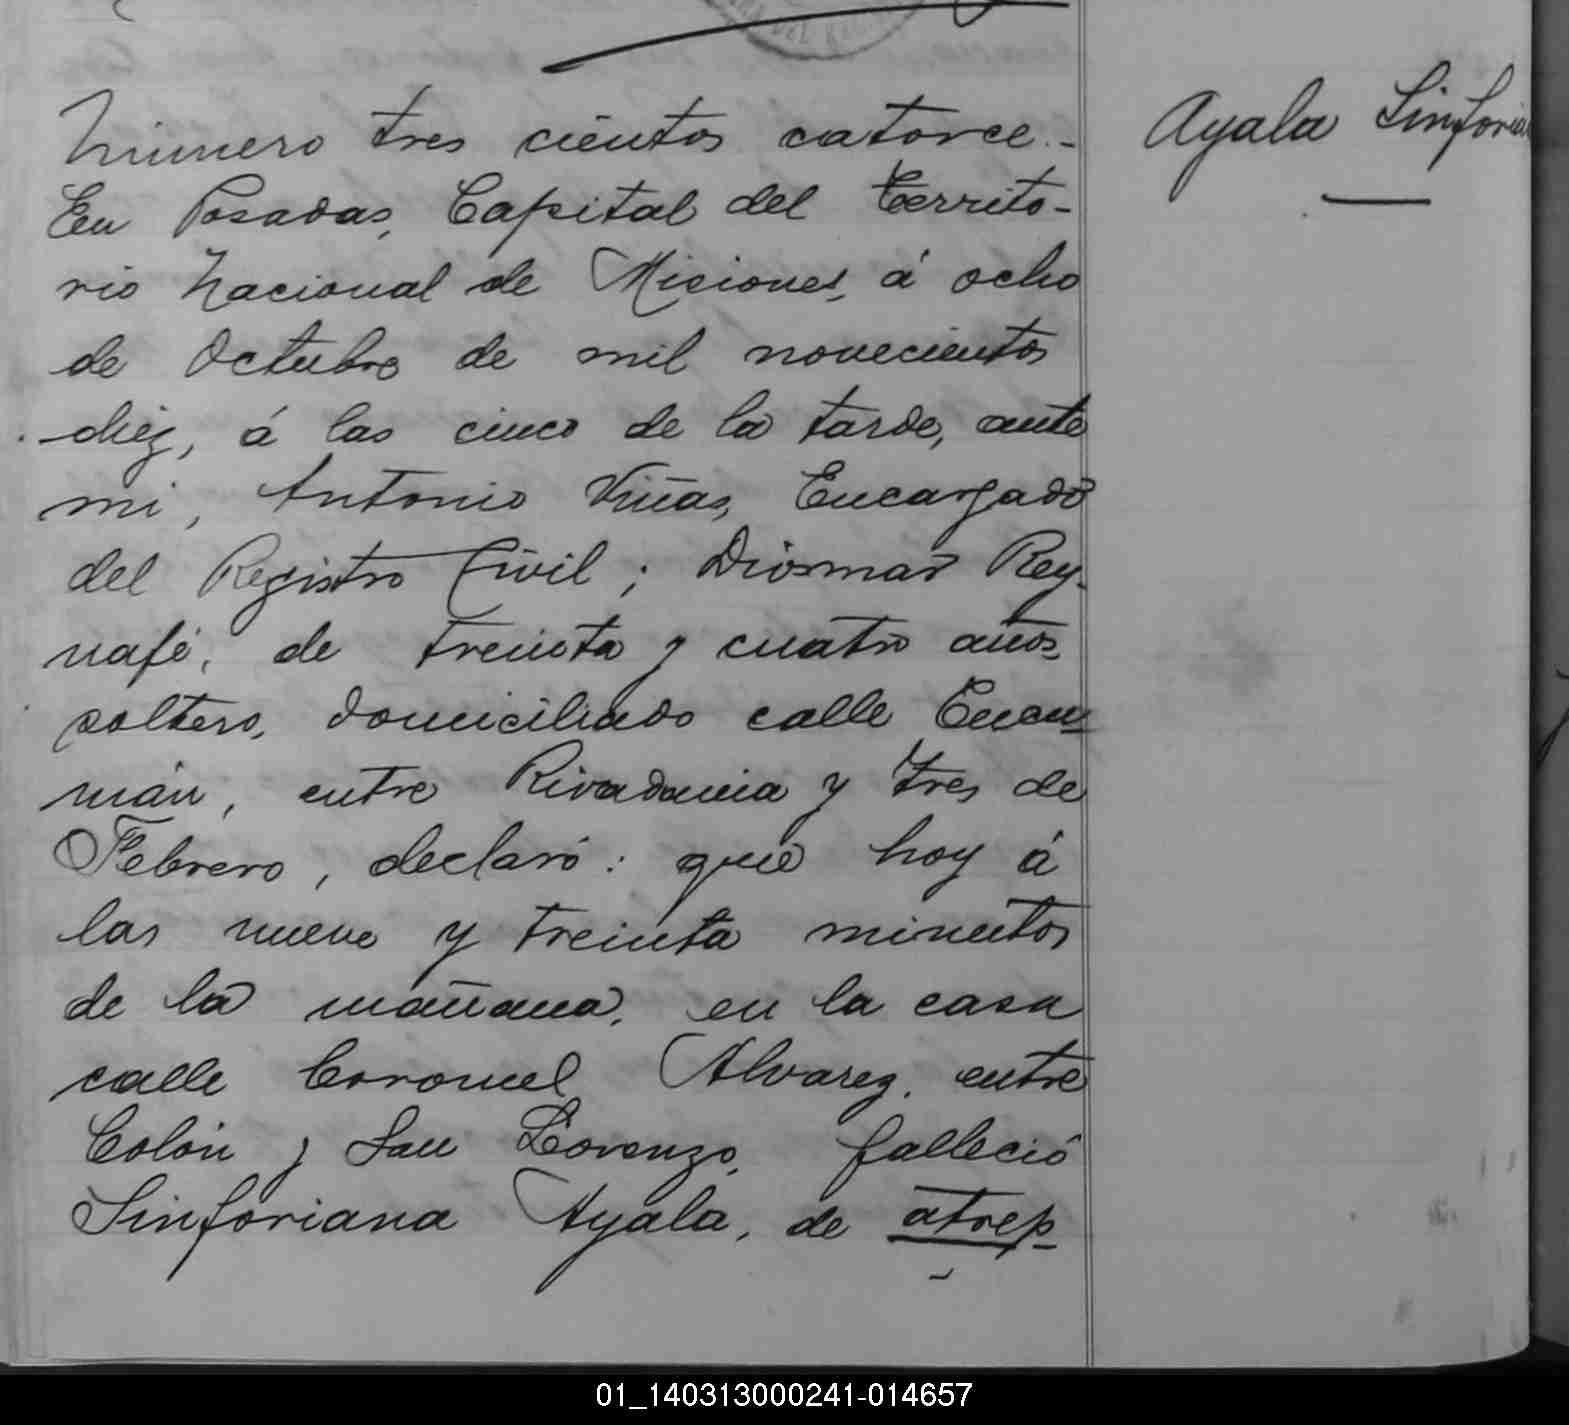 Número tres cientos catorce.-
Ayala Sinforia
En Posadas, Capital del Territo-
rio Nacional de Misiones, á ocho
de Octubre de mil novecientos
diez, á las cinco de la tarde, ante
mi, Antonio Viñas, Encargado
del Registro Civil; Diosmar Rey-
nafé, de treinta y cuatro años,
soltero, domiciliado calle Tucu-
mán, entre Rivadavia y Tres de
Febrero, declaró: que hoy á
las nueve y treinta minutos
de la mañana, en la casa
calle Coronel Alvarez, entre
Colón y San Lorenzo, falleció
Sinforiana Ayala, de atrep-
01_140313000241-014657